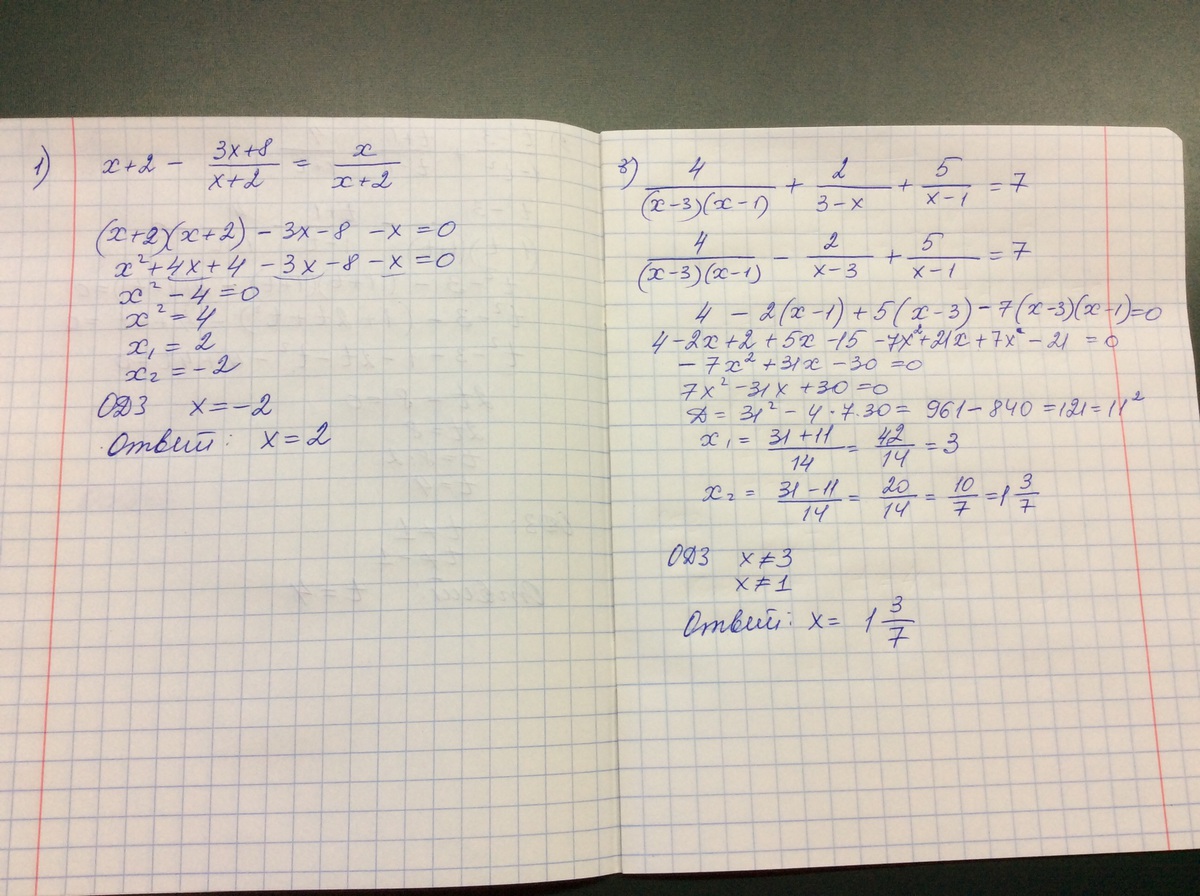 1) x+2 - (3x+8)/(x+2) = x/(x+2)
(x+2)(x+2) - 3x-8 -x = 0
x² + 4x + 4 - 3x - 8 - x = 0
x² - 4 = 0
x² = 4
x₁ = 2
x₂ = -2
ОДЗ x = -2
Ответ: x = 2
3) 4/((x-3)(x-1)) + 2/(3-x) + 5/(x-1) = 7
4/((x-3)(x-1)) - 2/(x-3) + 5/(x-1) = 7
4 - 2(x-1) + 5(x-3) - 7(x-3)(x-1) = 0
4 - 2x + 2 + 5x - 15 - 7x² + 21x + 7x - 21 = 0
- 7x² + 31x - 30 = 0
7x² - 31x + 30 = 0
Д = 31² - 4 · 7 · 30 = 961 - 840 = 121 = 11²
x₁ = (31 + 11)/14 = 42/14 = 3
x₂ = (31 - 11)/14 = 20/14 = 10/7 = 1 3/7
ОДЗ x ≠ 3
x ≠ 1
Ответ: x = 1 3/7